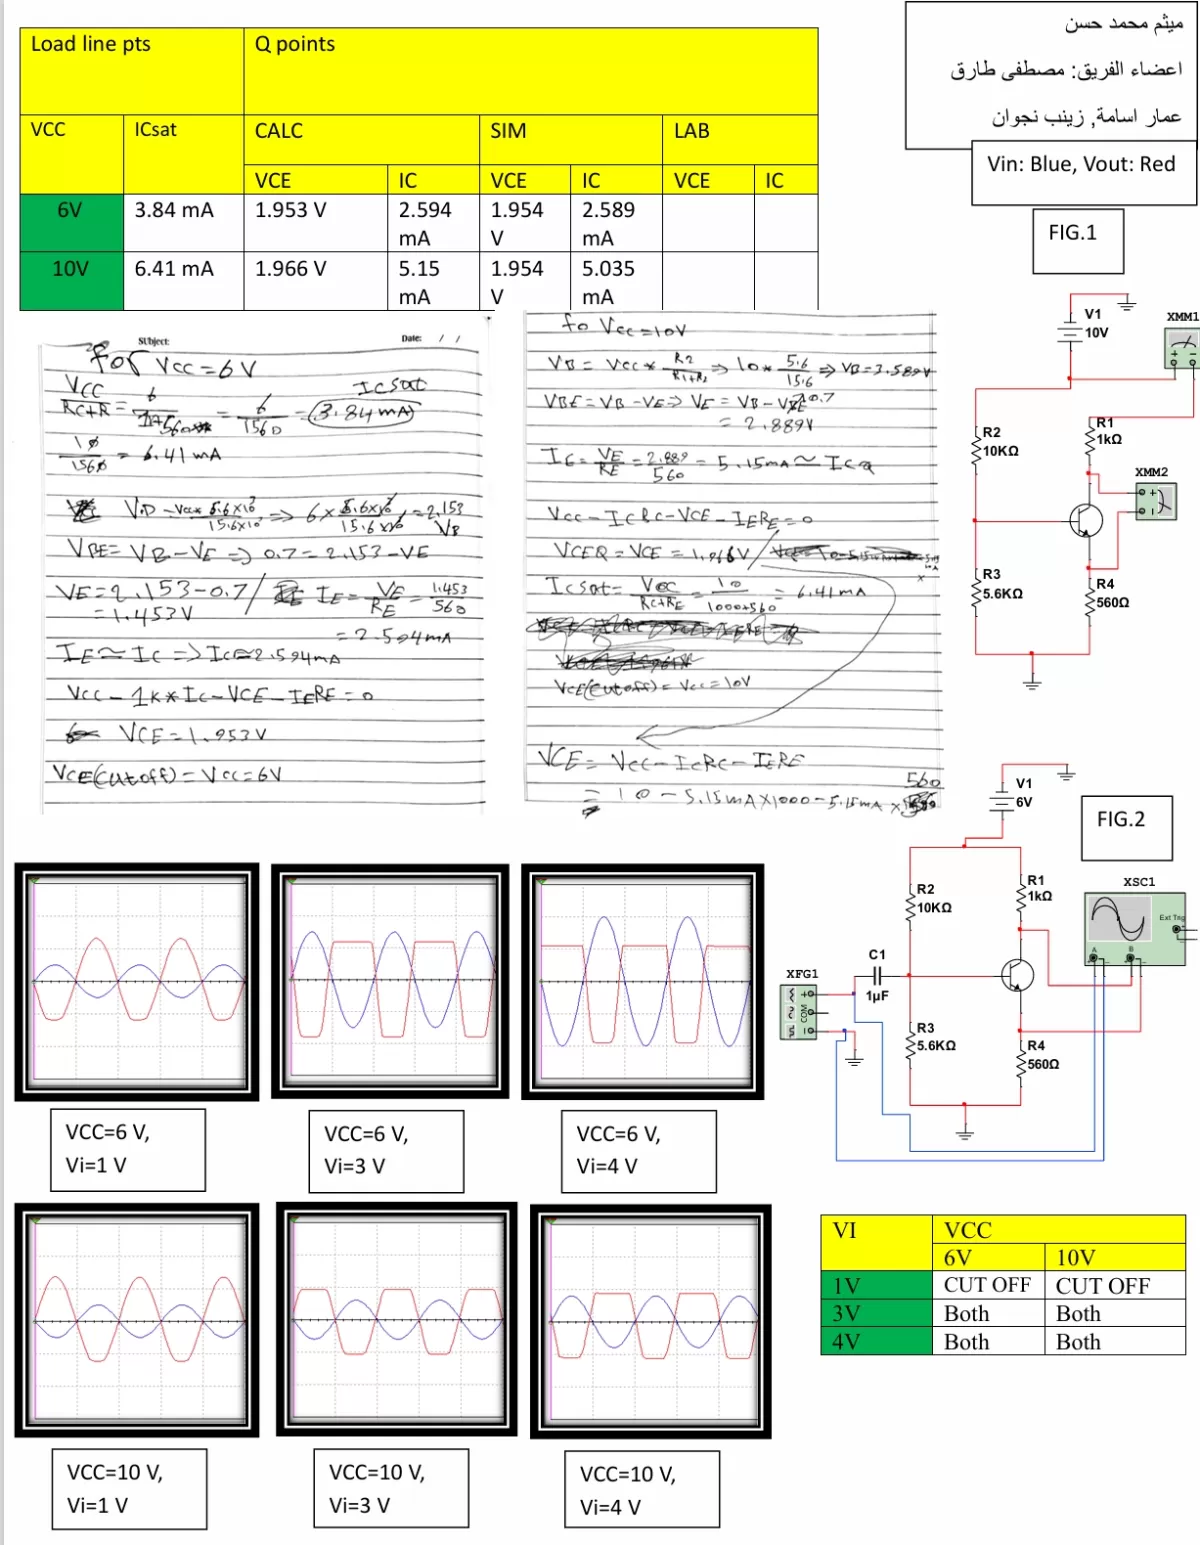 Load line pts Q points
VCC ICsat CALC SIM LAB
VCE IC VCE IC VCE IC
6V 3.84 mA 1.953 V 2.594 mA 1.954 V 2.589 mA
10V 6.41 mA 1.966 V 5.15 mA 1.954 V 5.035 mA
ميثم محمد حسن
اعضاء الفريق: مصطفى طارق
عمار اسامة, زينب نجوان
Vin: Blue, Vout: Red
FIG.1
V1
10V
XMM1
R2
10KΩ
R1
1kΩ
XMM2
R3
5.6KΩ
R4
560Ω
Subject:
Date: / /
For VCC = 6V
VCC / RC+R = 6 / = 6 / 1560 = 3.84mA ICsat
10 / 1560 = 6.41 mA
6 × 5.6×10³ / 15.6×10³ = 2.153 VB
VBE = VB - VE => 0.7 = 2.153 - VE
VE = 2.153 - 0.7 / IE = VE / RE = 1.453 / 560
= 1.453V
= 2.594mA
IE ≈ IC => IC ≈ 2.594mA
VCC - 1K*IC - VCE - IERE = 0
VCE = 1.953V
VCE(cutoff) = VCC = 6V
fo VCC = 10V
VB = VCC * R2 / R1+R2 => 10 * 5.6 / 15.6 => VB = 3.589V
VBE = VB - VE => VE = VB - 0.7
= 2.889V
= VE / RE = 2.889 / 560 = 5.15mA ≈ ICQ
VCC - ICRC - VCE - IERE = 0
VCEQ = VCE = 1.966V
ICsat = VCC / RC+RE = 10 / 1000+560 = 6.41mA
VCE(cutoff) = VCC = 10V
VCE = VCC - ICRC - IERE
= 10 - 5.15mA×1000 - 5.15mA × 560
V1
6V
FIG.2
R2
10KΩ
R1
1kΩ
XSC1
Ext Trig
A B
C1
1µF
XFG1
COM
R3
5.6KΩ
R4
560Ω
VCC=6 V,
Vi=1 V
VCC=6 V,
Vi=3 V
VCC=6 V,
Vi=4 V
VCC=10 V,
Vi=1 V
VCC=10 V,
Vi=3 V
VCC=10 V,
Vi=4 V
VI VCC
6V 10V
1V CUT OFF CUT OFF
3V Both Both
4V Both Both